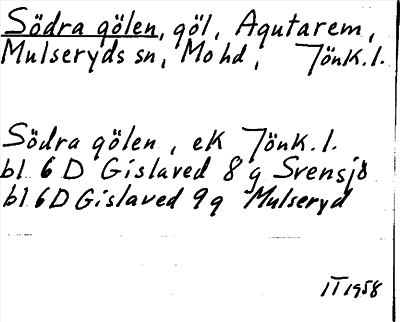 Södra gölen, göl, Agutarem,
Mulseryds sn, Mo hd, Jönk.l.
Södra gölen, ek Jönk.l.
bl 6 D Gislaved 8 g Svensjö
bl 6 D Gislaved 9 g Mulseryd
IT 1958